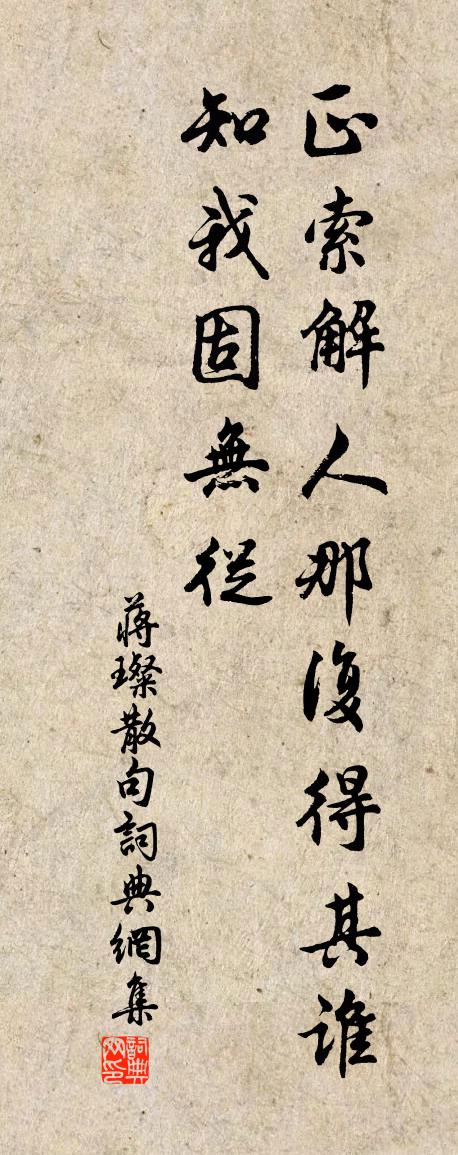 正索解人那復得其誰
知我固無從
蔣璨散句詞典網集
詞典網印